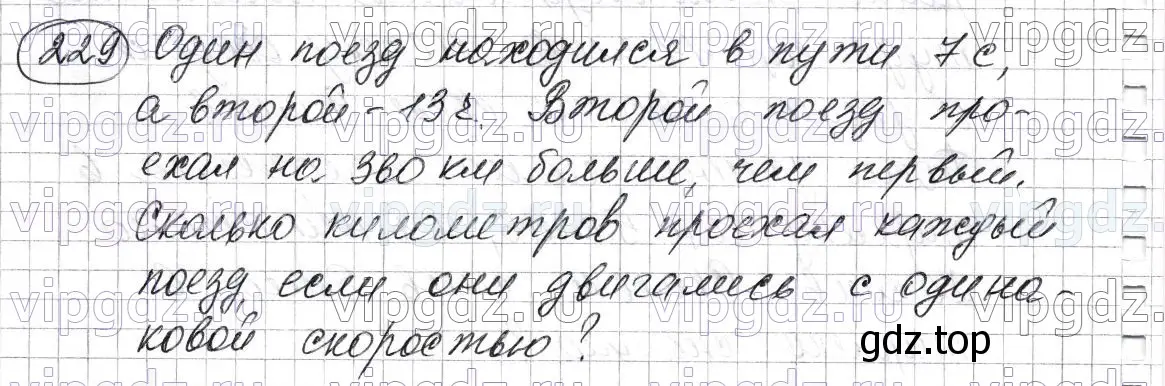 229 Один поезд находился в пути 7 с,
а второй - 13 ч. Второй поезд про-
ехал на 360 км больше, чем первый.
Сколько километров проехал каждый
поезд, если они двигались с одина-
ковой скоростью?
vipgdz.
gdz.top